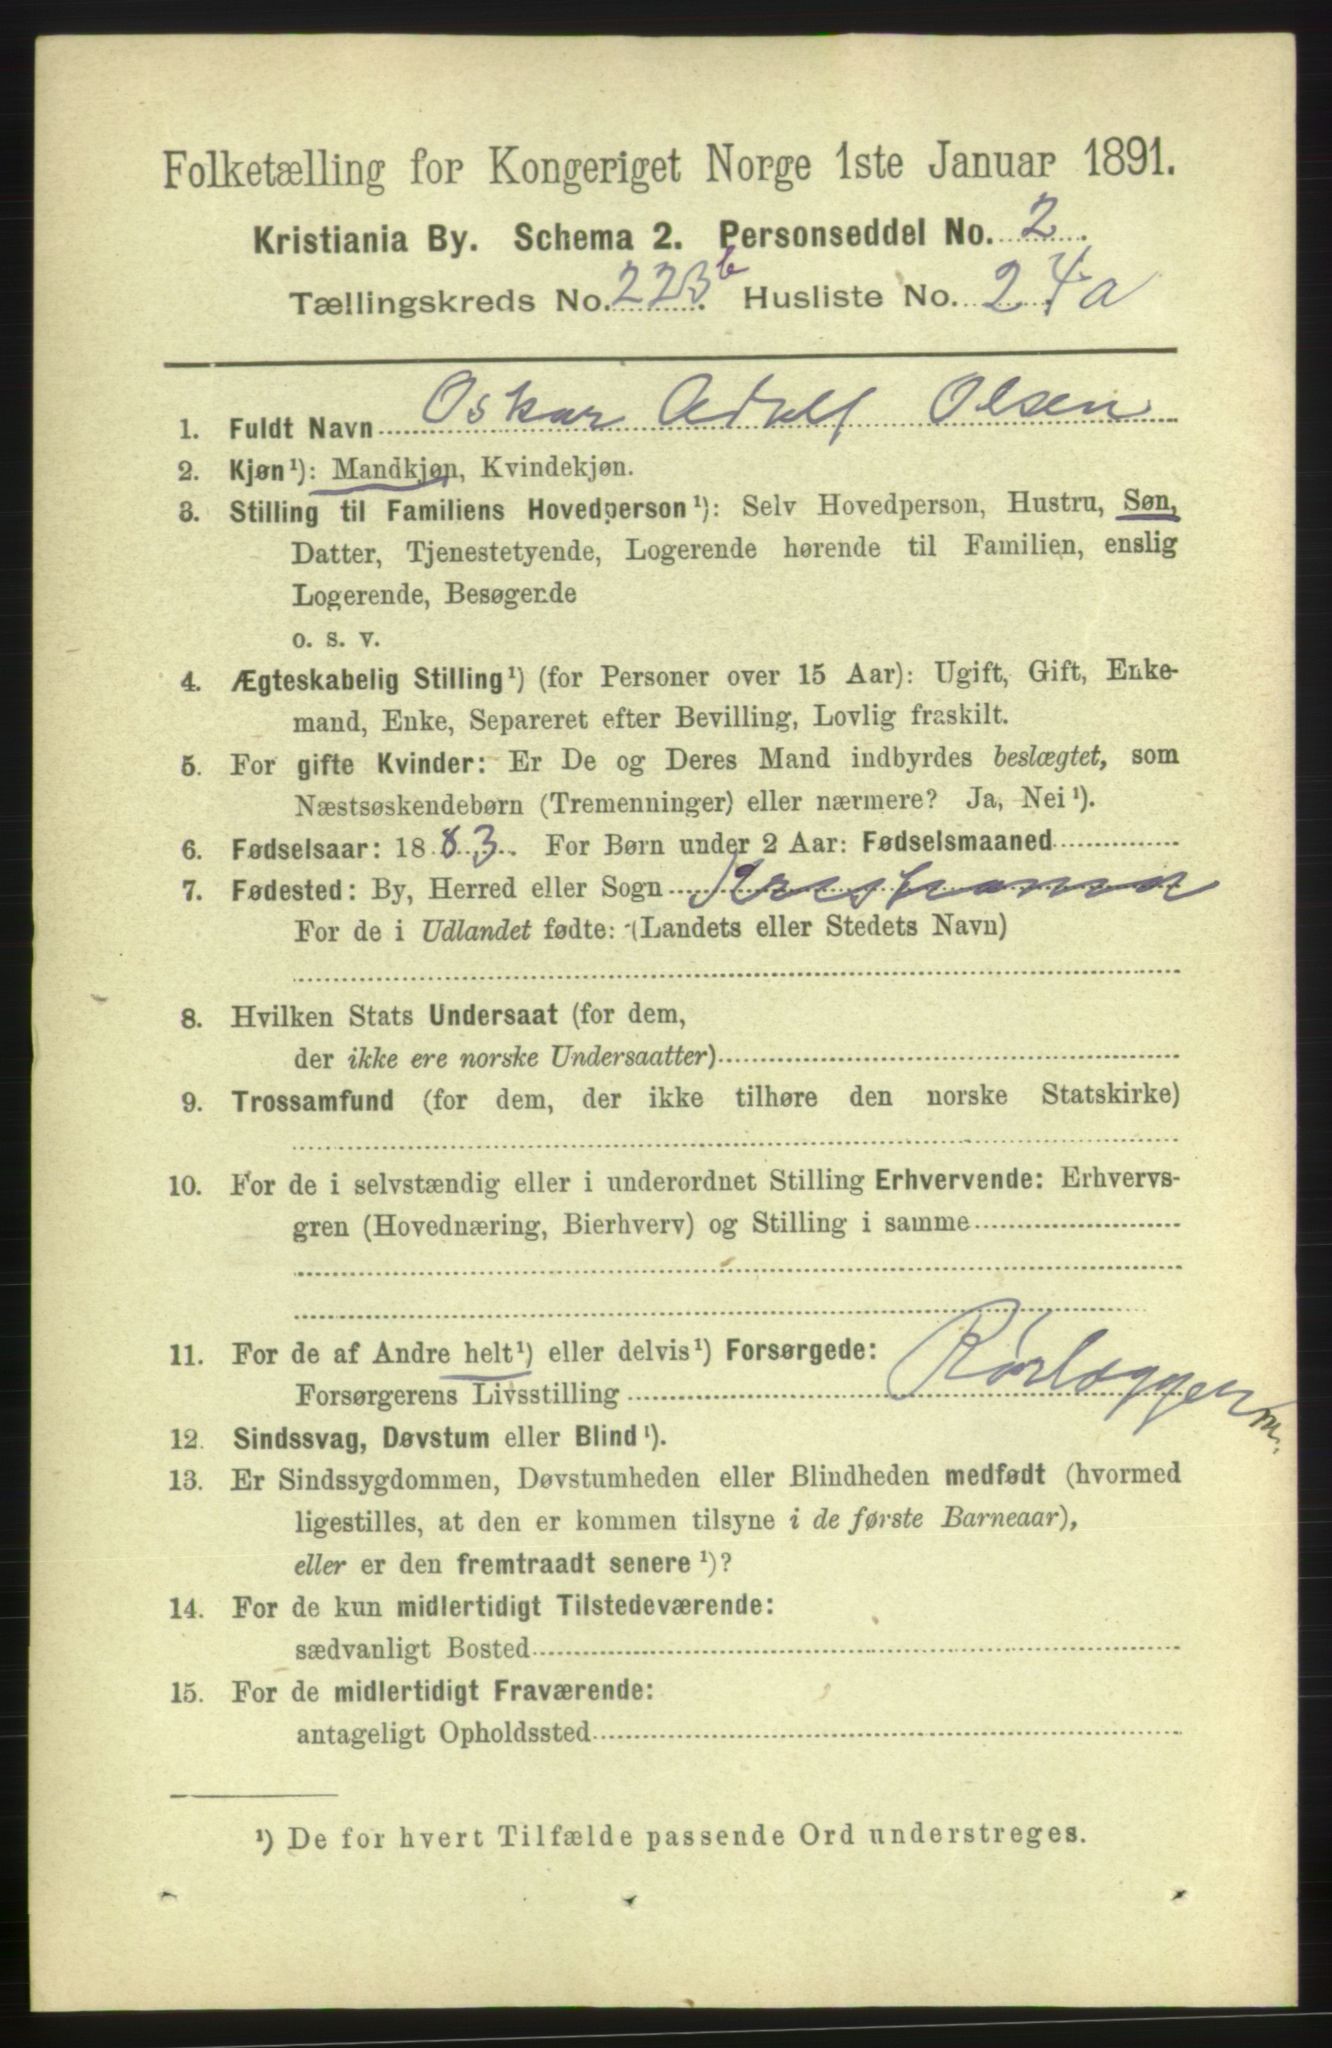 Folketælling for Kongeriget Norge 1ste Januar 1891.
Kristiania By. Schema 2. Personseddel No. 2.
Tællingskreds No. 223b. Husliste No. 24a
1. Fuldt Navn Oskar Adolf Olsen
2. Kjøn¹): Mandkjøn, Kvindekjøn.
3. Stilling til Familiens Hovedperson¹): Selv Hovedperson, Hustru, Søn,
Datter, Tjenestetyende, Logerende hørende til Familien, enslig
Logerende, Besøgende
o. s. v.
4. Ægteskabelig Stilling¹) (for Personer over 15 Aar): Ugift, Gift, Enke-
mand, Enke, Separeret efter Bevilling, Lovlig fraskilt.
5. For gifte Kvinder: Er De og Deres Mand indbyrdes beslægtet, som
Næstsøskendebørn (Tremenninger) eller nærmere? Ja, Nei¹).
6. Fødselsaar: 1883. For Børn under 2 Aar: Fødselsmaaned
7. Fødested: By, Herred eller Sogn Kristiania
For de i Udlandet fødte: (Landets eller Stedets Navn)
8. Hvilken Stats Undersaat (for dem,
der ikke ere norske Undersaatter)
9. Trossamfund (for dem, der ikke tilhøre den norske Statskirke)
10. For de i selvstændig eller i underordnet Stilling Erhvervende: Erhvervs-
gren (Hovednæring, Bierhverv) og Stilling i samme
11. For de af Andre helt¹) eller delvis¹) Forsørgede:
Forsørgerens Livsstilling Rørlægger m.
12. Sindssvag, Døvstum eller Blind¹).
13. Er Sindssygdommen, Døvstumheden eller Blindheden medfødt (hvormed
ligestilles, at den er kommen tilsyne i de første Barneaar),
eller er den fremtraadt senere¹)?
14. For de kun midlertidigt Tilstedeværende:
sædvanligt Bosted
15. For de midlertidigt Fraværende:
antageligt Opholdssted
¹) De for hvert Tilfælde passende Ord understreges.